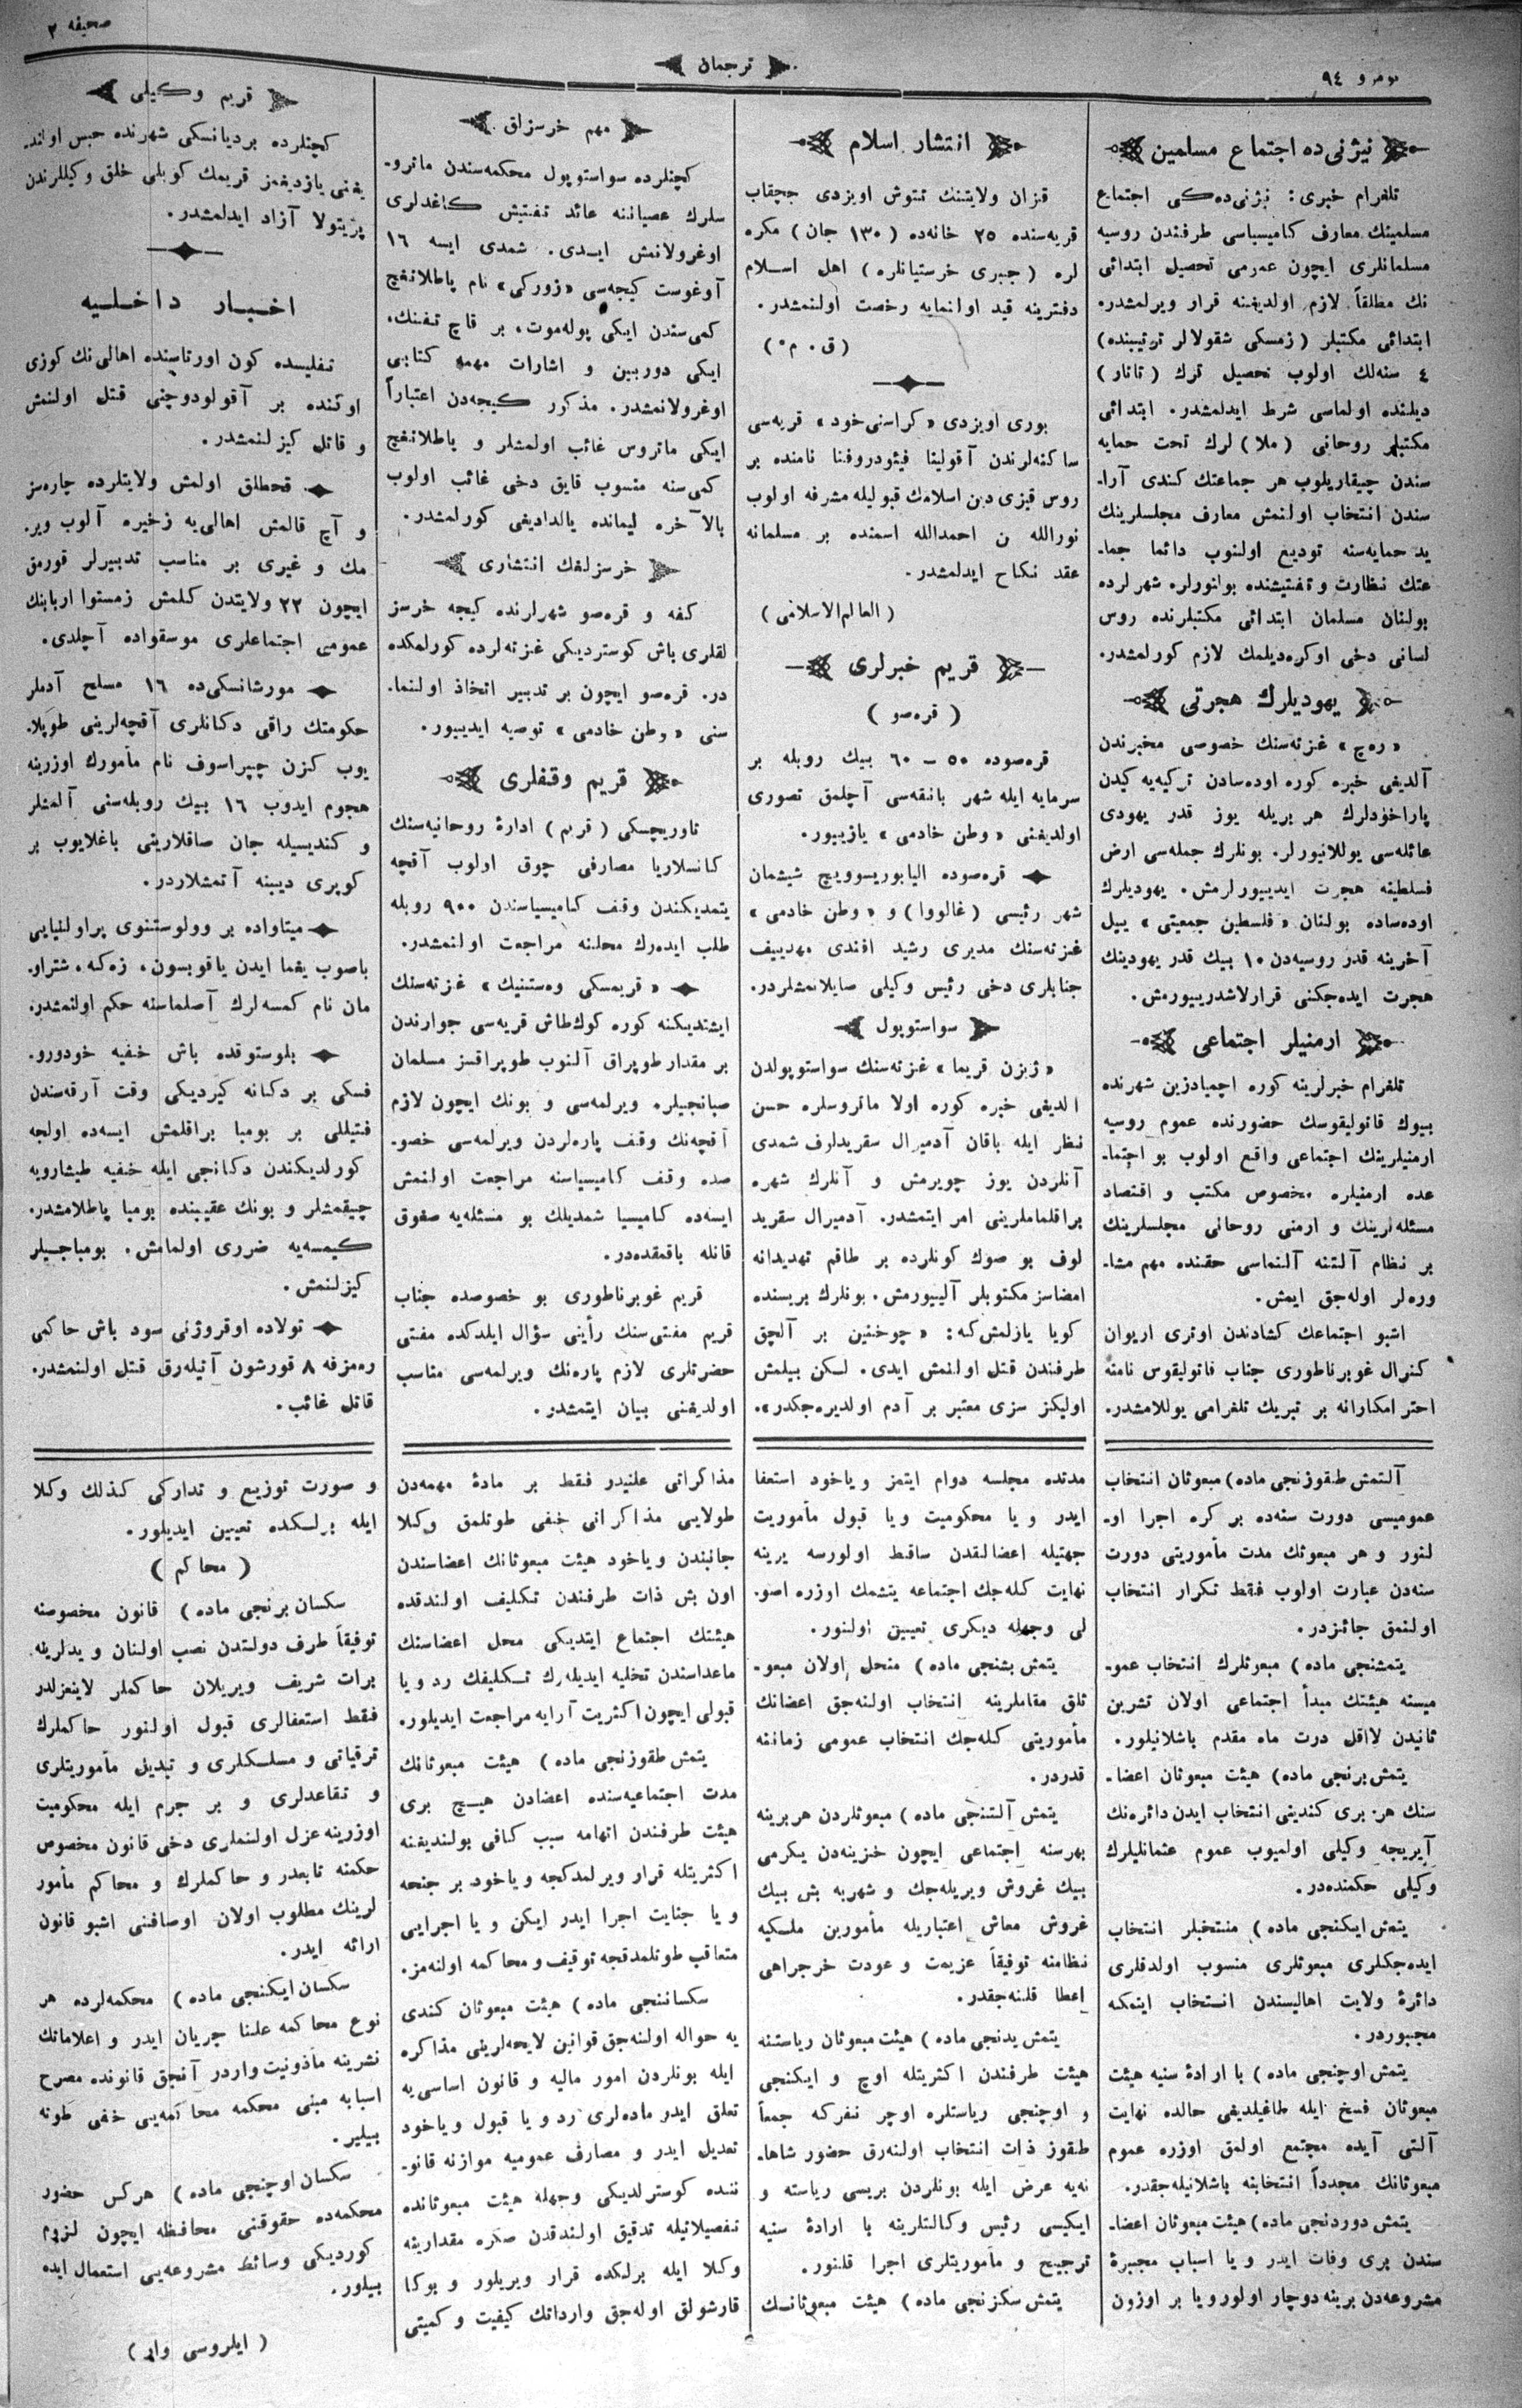 نومرو ٩٤
ترجمان
صحيفه ٢
نيژنى‌ده اجتماع مسلمين
تلغرام خبرى: نيژنى‌ده‌كى اجتماع
مسلمينك معارف كاميسياسى طرفندن روسيه
مسلمانلرى ايچون عمومى تحصيل ابتدائى
نك مطلقاً لازم اولديغنه قرار ويرلمشدر.
ابتدائى مكتبلر (زمسكى شقولالر ترتيبنده)
٤ سنه‌لك اولوب تحصيل ترك (تاتار)
ديلنده اولماسى شرط ايدلمشدر. ابتدائى
مكتبلر روحانى (ملا) لرك تحت حمايه
سندن چيقاريلوب هر جماعتك كندى آرا-
سندن انتخاب اولنمش معارف مجلسلرينك
يد حمايه‌سنه توديع اولنوب دائما جما-
عتك نظارت و تفتيشنده بولنورلر. شهرلرده
بولنان مسلمان ابتدائى مكتبلرنده روس
لسانى دخى اوكره‌ديلمك لازم كورلمشدر.
يهوديلرك هجرتى
«ره‌چ» غزته‌سنك خصوصى مخبرندن
آلديغى خبره كوره اوده‌سادن تركيه‌يه كيدن
پاراخودلرك هر بريله يوز قدر يهودى
عائله‌سى يوللانيورلر. بونلرك جمله‌سى ارض
فسلطينه هجرت ايدييورلرمش. يهوديلرك
اوده‌ساده بولنان «فلسطين جمعيتى» ييل
آخرينه قدر روسيه‌دن ١٠ بيك قدر يهودينك
هجرت ايده‌جكنى قرارلاشدرييورمش.
ارمنيلر اجتماعى
تلغرام خبرلرينه كوره اچميادزين شهرنده
بيوك قاتوليقوسك حضورنده عموم روسيه
ارمنيلرينك اجتماعى واقع اولوب بو اجتما-
عده ارمنيلره مخصوص مكتب و اقتصاد
مسئله‌لرينك و ارمنى روحانى مجلسلرينك
بر نظام آلتنه آلنماسى حقنده مهم مشا-
وره‌لر اوله‌جق ايمش.
اشبو اجتماعك كشادندن اوترى اريوان
كنرال غوبرناطورى جناب قاتوليقوس نامنه
احترامكارانه بر تبريك تلغرامى يوللامشدر.
انتشار اسلام
قزان ولايتنك تتوش اويزدى چچقاب
قريه‌سنده ٢٥ خانه‌ده (١٣٠ جان) مكره
لره (جبرى خرستيانلره) اهل اسلام
دفترينه قيد اولنمايه رخصت اولنمشدر.
(ق. م.)
بورى اويزدى «كراسنى خود» قريه‌سى
ساكنه‌لرندن آقولينا فيئودروفنا نامنده بر
روس قيزى دين اسلامك قبوليله مشرفه اولوب
نورالله بن احمدالله اسمنده بر مسلمانه
عقد نكاح ايدلمشدر.
(العالم الاسلامى)
قريم خبرلرى
(قره‌صو)
قره‌صوده ٥٠ – ٦٠ بيك روبله بر
سرمايه ايله شهر بانقه‌سى آچلمق تصورى
اولديغنى «وطن خادمى» يازييور.
قره‌صوده اليابوريسوويچ شيشمان
شهر رئيسى (غالووا) و «وطن خادمى»
غزته‌سنك مديرى رشيد افندى مهدييف
جنابلرى دخى رئيس وكيلى صايلانمشلردر.
سواستوپول
«ژيزن قريما» غزته‌سنك سواستوپولدن
الديغى خبره كوره اولا ماتروسلره حسن
نظر ايله باقان آدميرال سقريدلوف شمدى
آنلردن يوز چويرمش و آنلرك شهره
براقلماملرينى امر ايتمشدر. آدميرال سقريد
لوف بو صوك كونلرده بر طاقم تهديدانه
امضاسز مكتوبلر آلييورمش. بونلرك بريسنده
كويا يازلمش‌كه: «چوخنين بر آلچق
طرفندن قتل اولنمش ايدى. لكن بيلمش
اوليكز سزى معتبر بر آدم اولديره‌جكدر».
مهم خرسزلق
كچنلرده سواستوپول محكمه‌سندن ماترو-
سلرك عصياننه عائد تفتيش كاغدلرى
اوغرولانمش ايدى. شمدى ايسه ١٦
آوغوست كيجه‌سى «زوركى» نام پاطلانغچ
كمى‌سندن ايكى پوله‌موت، بر قاچ تفنك،
ايكى دوربين و اشارات مهمه كتابى
اوغرولانمشدر. مذكور كيجه‌دن اعتباراً
ايكى ماتروس غائب اولمشلر و پاطلانغچ
كمى‌سنه منسوب قايق دخى غائب اولوب
بالآخره ليمانده يالداديغى كورلمشدر.
خرسزلغك انتشارى
كفه و قره‌صو شهرلرنده كيجه خرسز
لقلرى باش كوسترديكى غزته‌لرده كورلمكده
در. قره‌صو ايچون بر تدبير اتخاذ اولنما-
سنى «وطن خادمى» توصيه ايدييور.
قريم وقفلرى
تاوريچسكى (قريم) ادارۀ روحانيه‌سنك
كانسلاريا مصارفى چوق اولوب آقچه
يتمديكندن وقف كاميسياسندن ٩٠٠ روبله
طلب ايده‌رك محلنه مراجعت اولنمشدر.
«قريمسكى وه‌ستنيك» غزته‌سنك
ايشتديكنه كوره كوك‌طاش قريه‌سى جوارندن
بر مقدار طوپراق آلنوب طوپراقسز مسلمان
صبانجيلره ويرلمه‌سى و بونك ايچون لازم
آقچه‌نك وقف پاره‌لردن ويرلمه‌سى خصو-
صده وقف كاميسياسنه مراجعت اولنمش
ايسه‌ده كاميسيا شمديلك بو مسئله‌يه صغوق
قانله باقمقده‌در.
قريم غوبرناطورى بو خصوصده جناب
قريم مفتى‌سنك رأينى سؤال ايلدكده مفتى
حضرتلرى لازم پاره‌نك ويرلمه‌سى مناسب
اولديغنى بيان ايتمشدر.
قريم وكيلى
كچنلرده برديانسكى شهرنده حبس اولند-
يغنى يازديغمز قريمك كويلى خلق وكيللرندن
پريتولا آزاد ايدلمشدر.
اخبار داخليه
تفليسده كون اورتاسنده اهالى‌نك كوزى
اوكنده بر آقولودوچنى قتل اولنمش
و قاتل كيزلنمشدر.
قحطلق اولمش ولايتلرده چاره‌سز
و آچ قالمش اهالى‌يه زخيره آلوب وير-
مك و غيرى بر مناسب تدبيرلر قورمق
ايچون ٢٢ ولايتدن كلمش زمستوا اربابنك
عمومى اجتماعلرى موسقواده آچلدى.
مورشانسكى‌ده ١٦ مسلح آدملر
حكومتك راقى دكانلرى آقچه‌لرينى طوپلا-
يوب كزن چپراسوف نام مأمورك اوزرينه
هجوم ايدوب ١٦ بيك روبله‌سنى آلمشلر
و كنديسيله جان صاقلارينى باغلايوب بر
كوپرى ديبنه آتمشلاردر.
ميتاواده بر وولوستنوى پراولنيايى
باصوب يغما ايدن ياقوبسون، زه‌كه، شتراو-
مان نام كمسه‌لرك آصلماسنه حكم اولنمشدر.
بلوستوقده باش خفيه خودورو-
فسكى بر دكانه كيرديكى وقت آرقه‌سندن
فتيللى بر بومبا براقلمش ايسه‌ده اولجه
كورلديكندن دكانجى ايله خفيه طيشارويه
چيقمشلر و بونك عقيبنده بومبا پاطلامشدر.
كيمسه‌يه ضررى اولمامش. بومباجيلر
كيزلنمش.
تولاده اوقروژنى سود باش حاكمى
ره‌مزفه ٨ قورشون آتيله‌رق قتل اولنمشدر.
قاتل غائب.
آلتمش طقوزنجى ماده) مبعوثان انتخاب
عموميسى دورت سنه‌ده بر كره اجرا او-
لنور و هر مبعوثك مدت مأموريتى دورت
سنه‌دن عبارت اولوب فقط تكرار انتخاب
اولنمق جائزدر.
يتمشنجى ماده) مبعوثلرك انتخاب عمو-
ميسنه هيئتك مبدأ اجتماعى اولان تشرين
ثانيدن لااقل درت ماه مقدم باشلانيلور.
يتمش برنجى ماده) هيئت مبعوثان اعضا-
سنك هر برى كندينى انتخاب ايدن دائره‌نك
آيريجه وكيلى اولميوب عموم عثمانليلرك
وكيلى حكمنده‌در.
يتمش ايكنجى ماده) منتخبلر انتخاب
ايده‌جكلرى مبعوثلرى منسوب اولدقلرى
دائرۀ ولايت اهاليسندن انتخاب ايتمكه
مجبوردر.
يتمش اوچنجى ماده) با ارادۀ سنيه هيئت
مبعوثان فسخ ايله طاغيلديغى حالده نهايت
آلتى آيده مجتمع اولمق اوزره عموم
مبعوثانك مجدداً انتخابنه باشلانيله‌جقدر.
يتمش دوردنجى ماده) هيئت مبعوثان اعضا-
سندن برى وفات ايدر و يا اسباب مجبرۀ
مشروعه‌دن برينه دوچار اولور و يا بر اوزون
مدتده مجلسه دوام ايتمز و ياخود استعفا
ايدر و يا محكوميت و يا قبول مأموريت
جهتيله اعضالقدن ساقط اولورسه يرينه
نهايت كله‌جك اجتماعه يتشمك اوزره اصو-
لى وجهله ديكرى تعيين اولنور.
يتمش بشنجى ماده) منحل اولان مبعو-
ثلق مقاملرينه انتخاب اولنه‌جق اعضانك
مأموريتى كله‌جك انتخاب عمومى زماننه
قدردر.
يتمش آلتنجى ماده) مبعوثلردن هر برينه
بهر سنه اجتماعى ايچون خزينه‌دن يكرمى
بيك غروش ويريله‌جك و شهريه بش بيك
غروش معاش اعتباريله مأمورين ملكيه
نظامنه توفيقاً عزيمت و عودت خرجراهى
اعطا قلنه‌جقدر.
يتمش يدنجى ماده) هيئت مبعوثان رياستنه
هيئت طرفندن اكثريتله اوچ و ايكنجى
و اوچنجى رياستلره اوچر نفركه جمعاً
طقوز ذات انتخاب اولنه‌رق حضور شاها-
نه‌يه عرض ايله بونلردن بريسى رياسته و
ايكيسى رئيس وكالتلرينه با ارادۀ سنيه
ترجيح و مأموريتلرى اجرا قلنور.
يتمش سكزنجى ماده) هيئت مبعوثانك
مذاكراتى علنيدر فقط بر مادۀ مهمه‌دن
طولايى مذاكراتى خفى طوتلمق وكلا
جانبندن و ياخود هيئت مبعوثانك اعضاسندن
اون بش ذات طرفندن تكليف اولندقده
هيئتك اجتماع ايتديكى محل اعضاسنك
ماعداسندن تخليه ايديله‌رك تكليفك رد و يا
قبولى ايچون اكثريت آرايه مراجعت ايديلور.
يتمش طقوزنجى ماده) هيئت مبعوثانك
مدت اجتماعيه‌سنده اعضادن هيچ برى
هيئت طرفندن اتهامه سبب كافى بولنديغنه
اكثريتله قرار ويرلمدكجه و ياخود بر جنحه
و يا جنايت اجرا ايدر ايكن و يا اجرايى
متعاقب طوتلمدقجه توقيف و محاكمه اولنه‌مز.
سكساننجى ماده) هيئت مبعوثان كندى
يه حواله اولنه‌جق قوانين لايحه‌لرينى مذاكره
ايله بونلردن امور ماليه و قانون اساسى‌يه
تعلق ايدر ماده‌لرى رد و يا قبول و ياخود
تعديل ايدر و مصارف عموميه موازنه قانو-
ننده كوسترلديكى وجهله هيئت مبعوثانده
تفصيلاتيله تدقيق اولندقدن صكره مقدارينه
وكلا ايله برلكده قرار ويريلور و بوكا
قارشولق اوله‌جق وارداتك كيفيت و كميتى
و صورت توزيع و تداركى كذلك وكلا
ايله برلكده تعيين ايديلور.
(محاكم)
سكسان برنجى ماده) قانون مخصوصنه
توفيقاً طرف دولتدن نصب اولنان و يدلرينه
برات شريف ويريلان حاكملر لاينعزلدر
فقط استعفالرى قبول اولنور حاكملرك
ترقياتى و مسلكلرى و تبديل مأموريتلرى
و تقاعدلرى و بر جرم ايله محكوميت
اوزرينه عزل اولنملرى دخى قانون مخصوص
حكمنه تابعدر و حاكملرك و محاكم مأمور
لرينك مطلوب اولان اوصافنى اشبو قانون
ارائه ايدر.
سكسان ايكنجى ماده) محكمه‌لرده هر
نوع محاكمه علنا جريان ايدر و اعلاماتك
نشرينه مأذونيت واردر آنجق قانونده مصرح
اسبابه مبنى محكمه محاكمه‌يى خفى طوته
بيلير.
سكسان اوچنجى ماده) هركس حضور
محكمه‌ده حقوقنى محافظه ايچون لزوم
كورديكى وسائط مشروعه‌يى استعمال ايده
بيلور.
(ايلروسى وار)